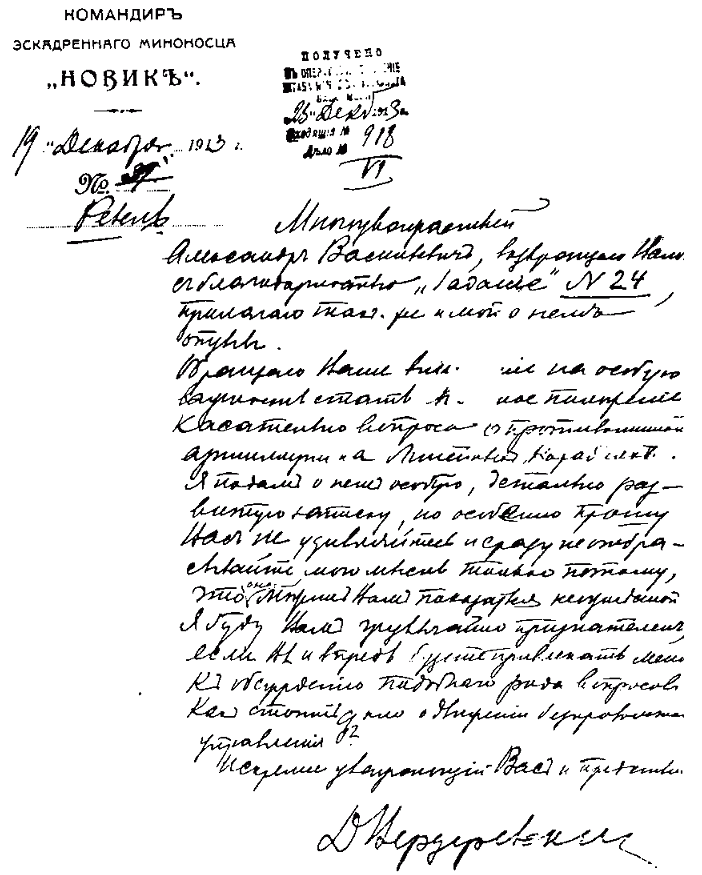 КОМАНДИРЪ
ЭСКАДРЕННАГО МИНОНОСЦА
„НОВИКЪ“.
19 „Декабря“ 1913 г.
№
Ревель
ПОЛУЧЕНО
ВЪ
ШТАБА
23 „Декабр 3
Входящій № 918
Дѣло №
VI
Многоуважаемый
Александръ Васильевичъ, возвращаю Вамъ
съ благодарностью „Заданіе“ N 24,
прилагаю такъ же и мой о немъ
отзывъ.
Обращаю Ваше на особую
важность
касательно вопроса о противоминной
артиллеріи на Линейныхъ Корабляхъ.
Я подалъ о ней особую, детально раз-
витую записку, но особенно прошу
Васъ не удивляйтесь и сразу не отбра-
сывайте мою мысль только потому,
что она можетъ Вамъ показаться
Я буду Вамъ чрезвычайно признателенъ,
если Вы и впредь будете привлекать меня
къ обсужденію подобнаго рода вопросовъ
Какъ стоитъ дѣло о
управленія?
Искренне уважающій Васъ и
Д Вердеревскій